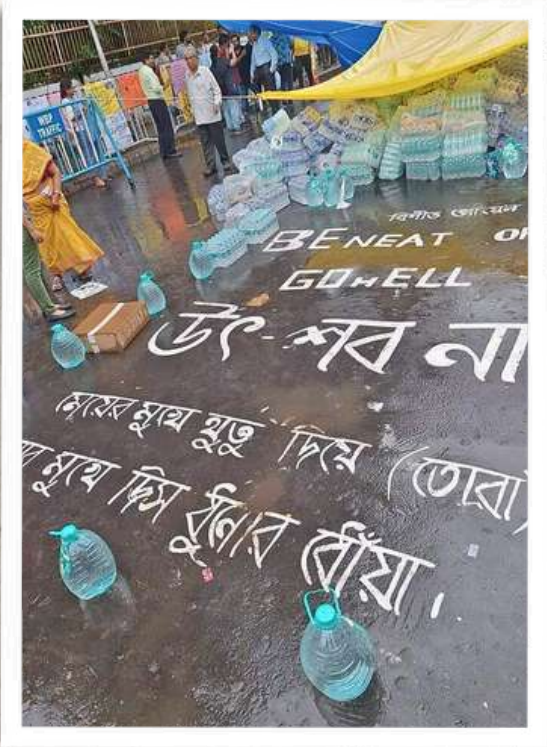 WBP
TRAFFIC
বিনীত গোয়েল
BENEAT
GOHELL
উৎ-শব না
মেয়ের মুখে থুতু দিয়ে (তোরা)
মুখে দিস ধুনোর ধোঁয়া।